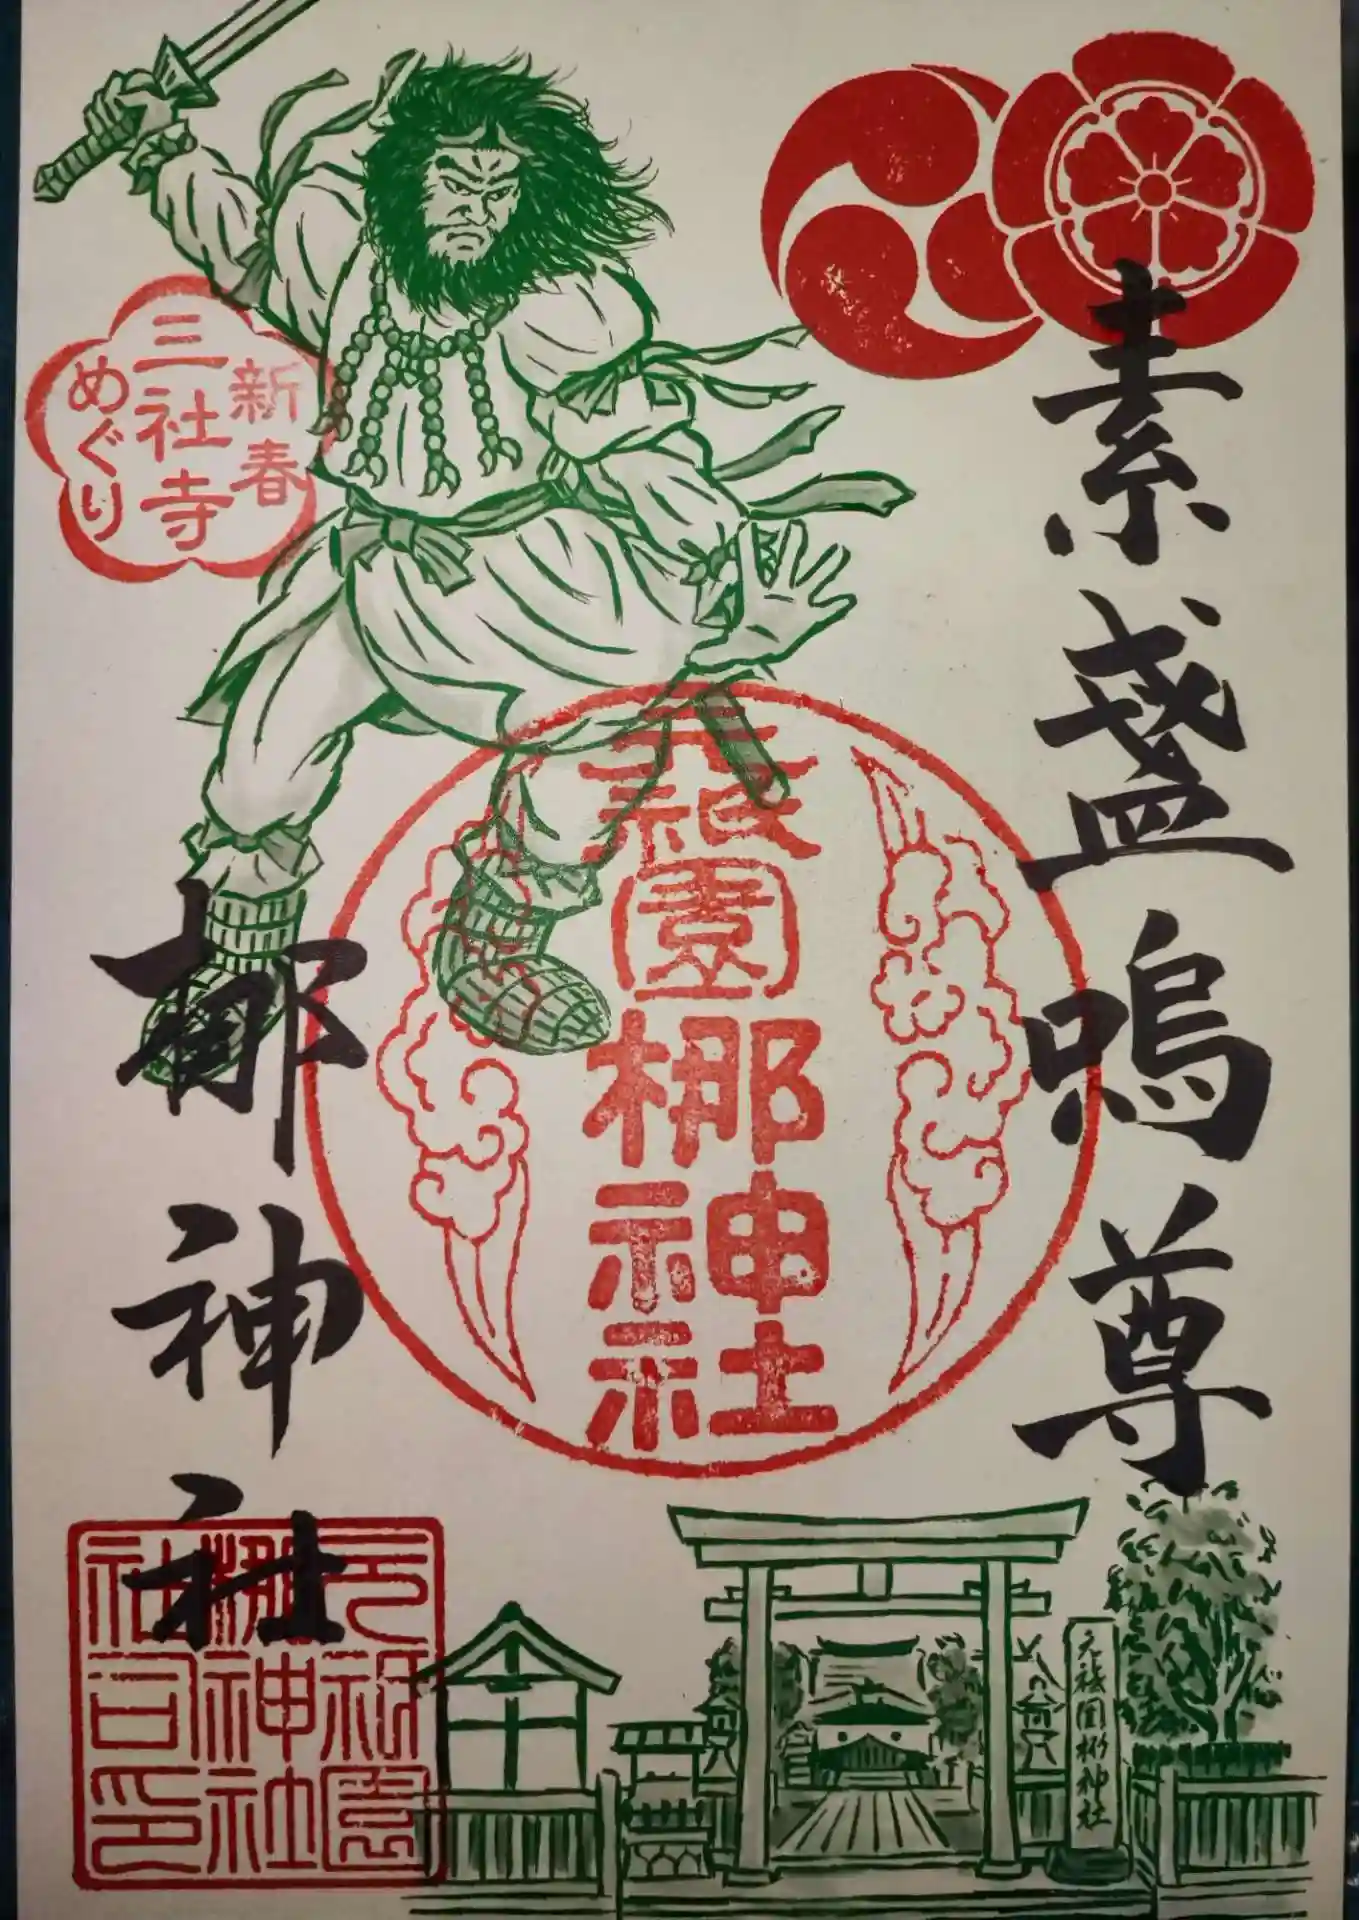 素盞嗚尊
新春
三社寺
めぐり
元祇園
梛神社
梛神社
元祇園
梛神社
社司印
元祇園梛神社